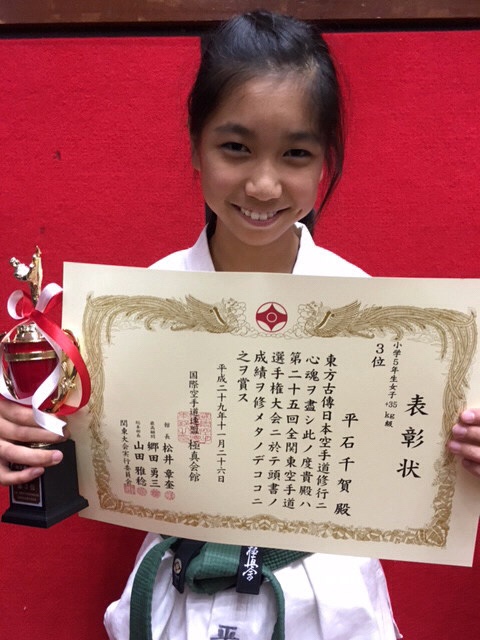 表彰状
小学5年生女子 +35kg級
3位
平石千賀殿
東方古傳日本空手道修行ニ
心魂ヲ盡シ此ノ度貴殿ハ
第二十五回全関東空手道
選手権大会ニ於テ頭書ノ
成績ヲ修メタノデココニ
之ヲ賞ス
平成二十九年十一月二十六日
国際空手道連盟 極真会館
館長 松井章奎
最高顧問 郷田勇三
山田雅稔
関東大会実行委員会
極真会
平